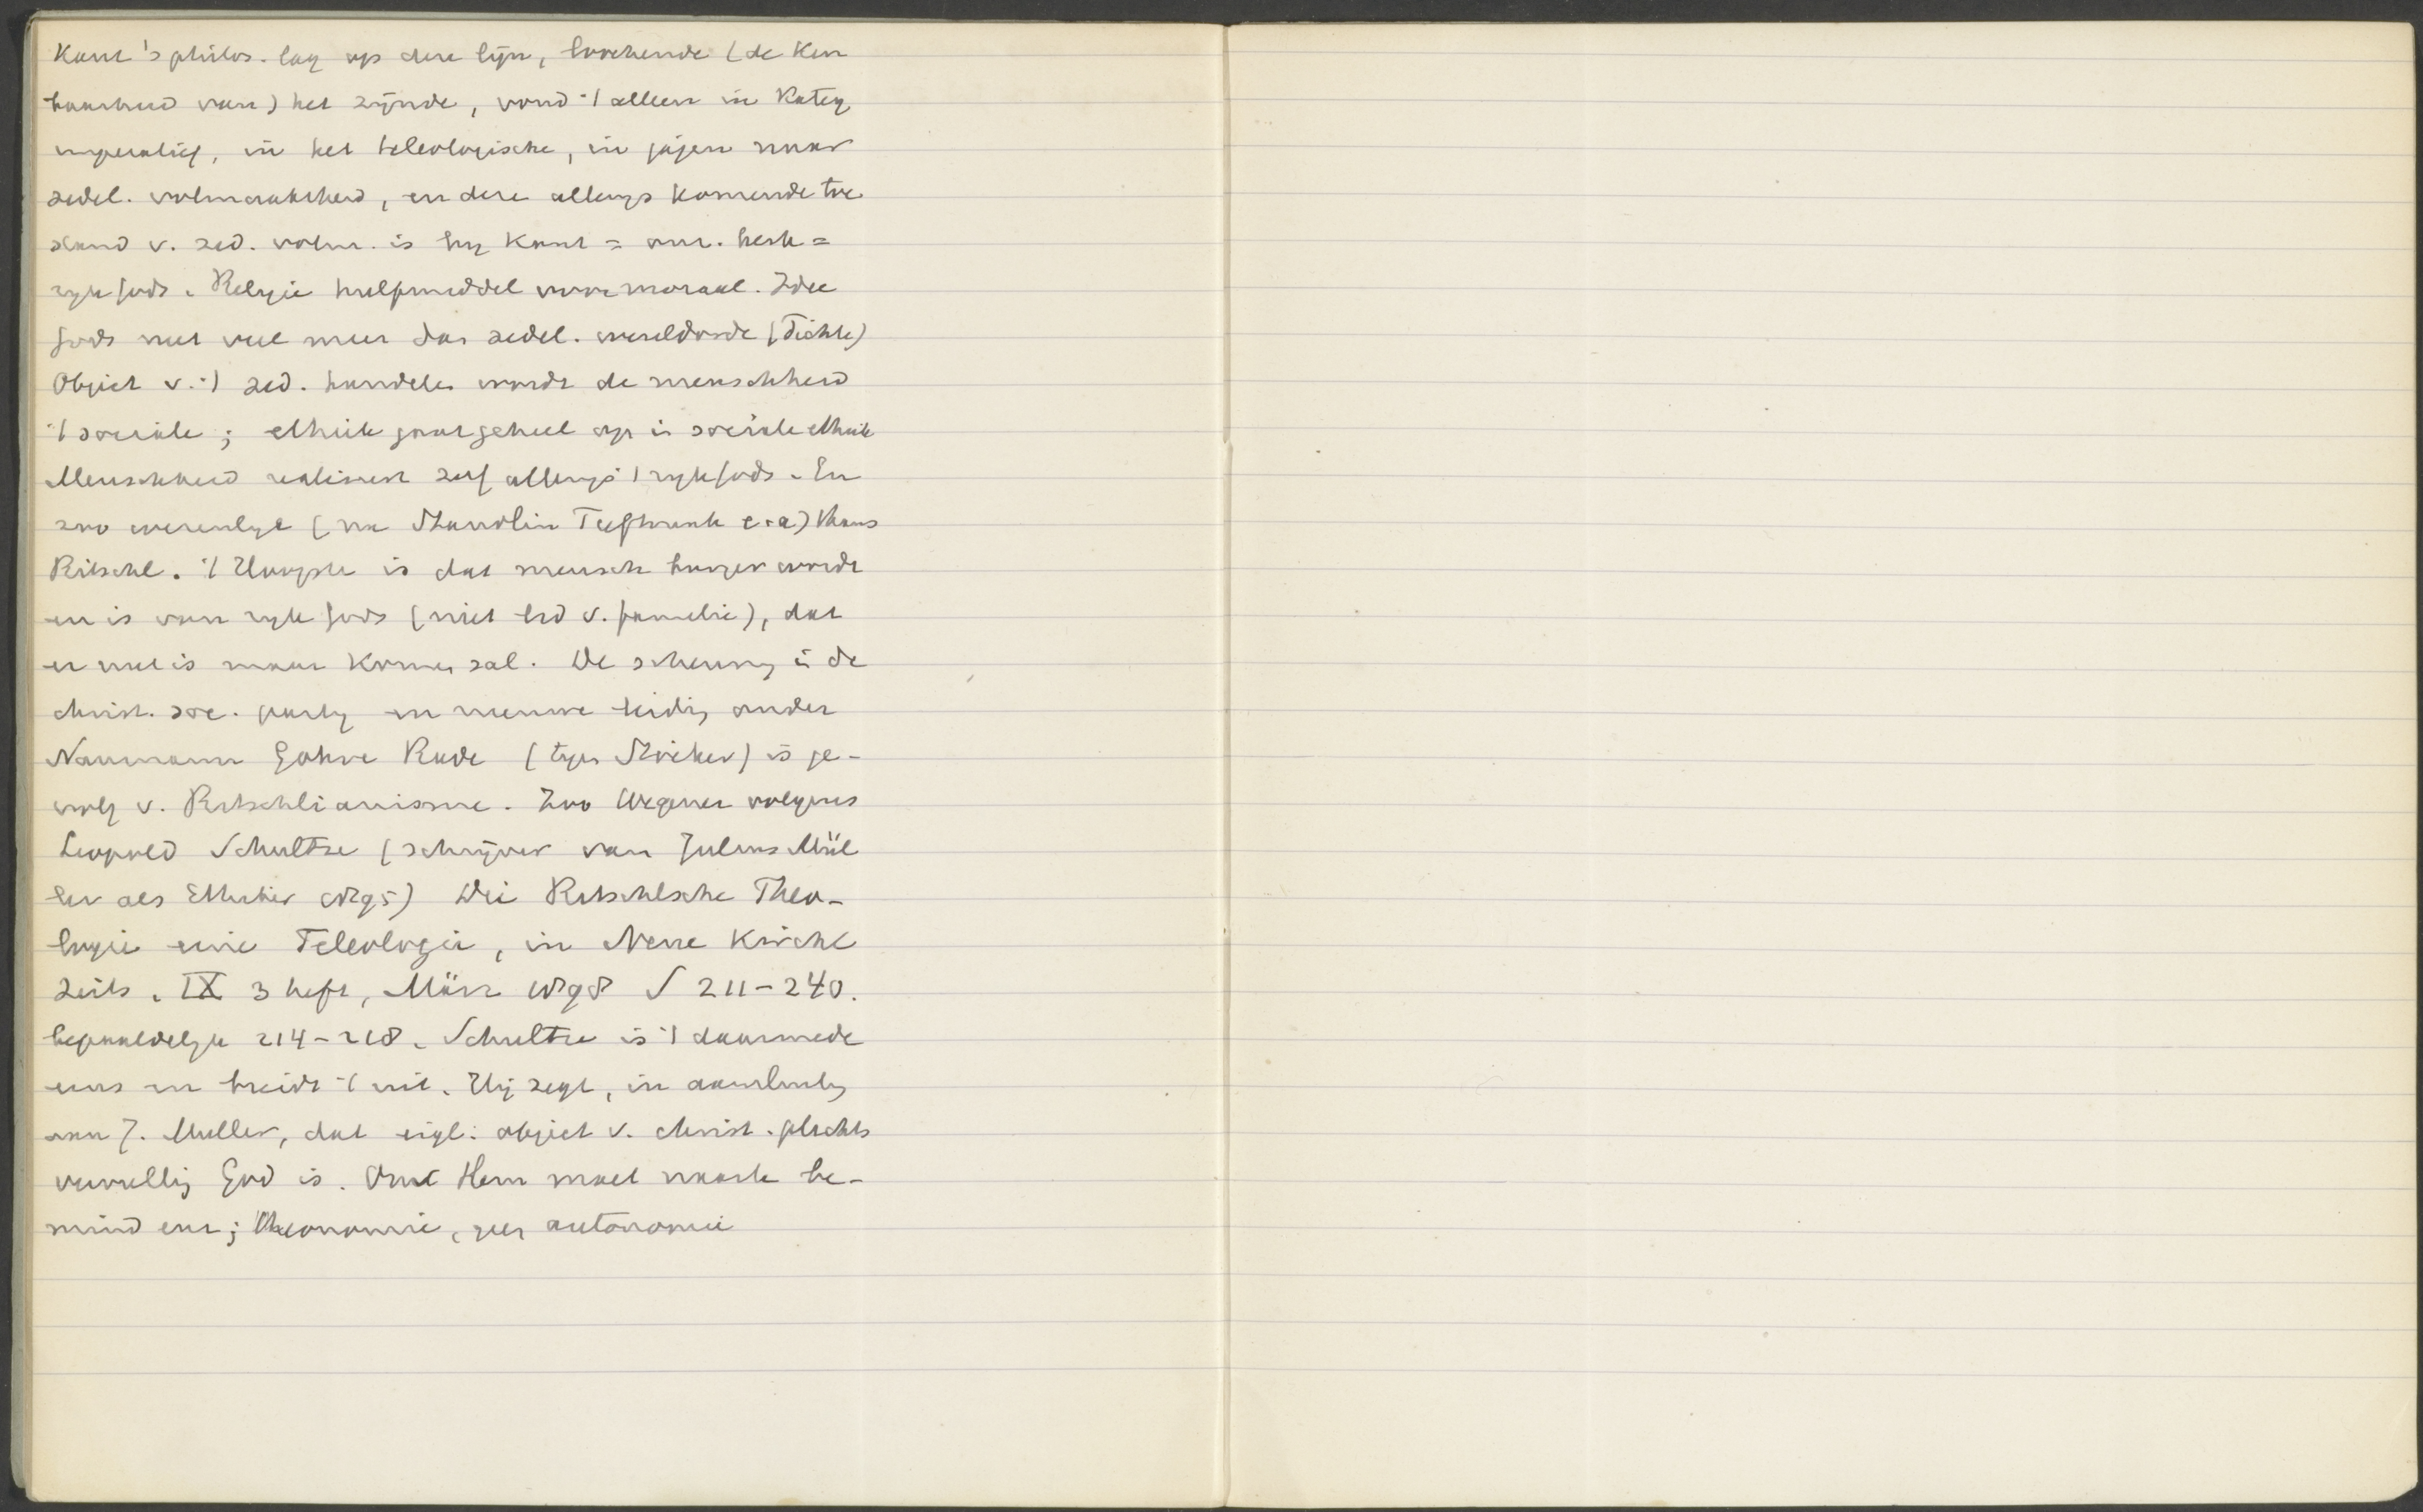 Kant's philos. lag op deze lijn, loochende (de Ken
baarheid van) het zijnde, vond 't alleen in Kateg
imperatief, in het teleologische, in jagen naar
zedel. volmaaktheid, en deze allengs komende toe
stand v. zed. volm. is bij Kant = onz. kerk =
rijk Gods. Religie hulpmiddel voor moraal. Idee
Gods niet veel meer dan zedel. wereldorde (Fichte)
Object v. 't zed. handelen wordt de menschheid
't sociale; ethiek gaat geheel op in sociale ethiek
Menschheid realiseert zelf allengs 't rijk Gods. En
zoo wezenlijk (na Staudlin Tieftrunk e.a) thans
Ritschl. 't Hoogste is dat mensch burger wordt
en is van rijk Gods (niet lid v. familie), dat
er niet is maar komen zal. De scheuring in de
christ. soc. partij en nieuwe leiding onder
Naumann Göhre Rade (tgen Stöcker) is ge-
volg v. Ritschlianisme. Zoo Wegener volgens
Leopold Schultze (schrijver van Julius Mül
ler als Ethiker 1895) Die Ritschlsche Theo-
logie eine Teleologie, in Neue Kirchl
Zeits. IX 3 heft, März 1898 S 211-240.
bepaaldelijk 214-218. Schultze is 't daarmede
eens en breidt 't uit. Hij zegt, in aansluiting
aan J. Muller, dat eigl. object v. christ. plichts
vervulling God is. Om Hem moet naaste be-
mind enz; theonomie, geen autonomie